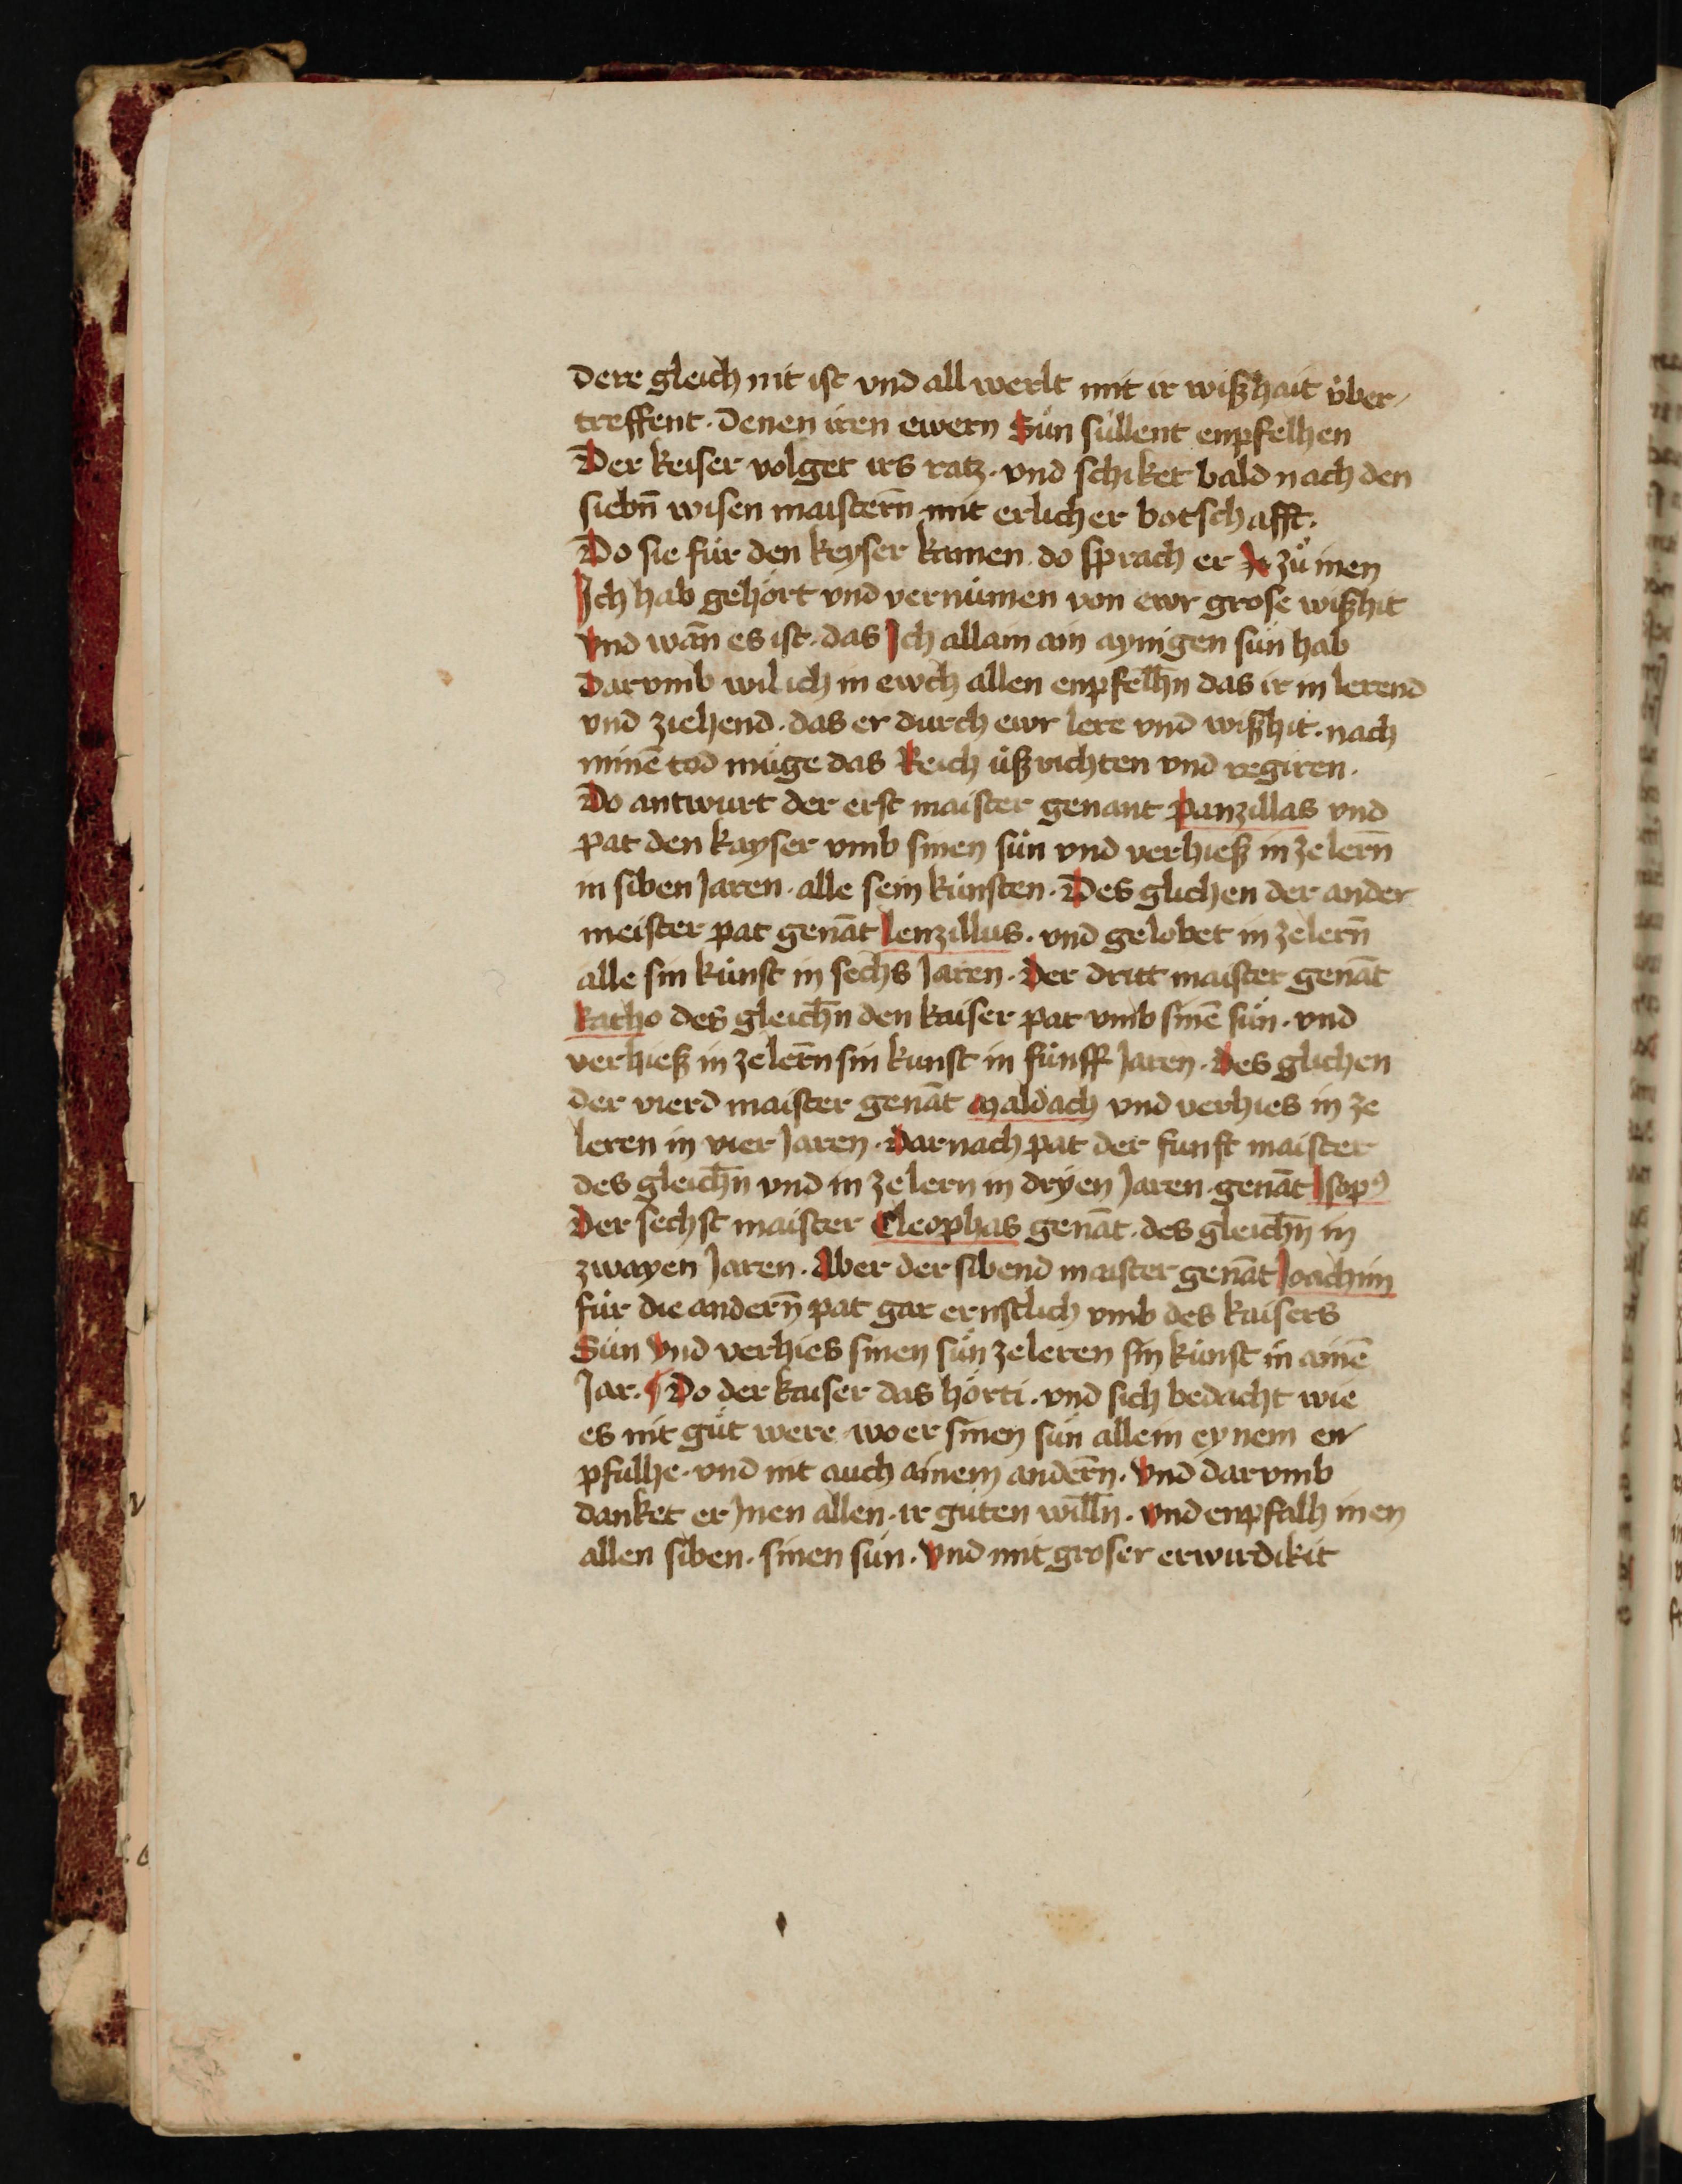 dere gleich nit ist vnd all werlt mit ir wißhait über-
treffent · denen iren ewern Sün süllent enpfelhen
Der keiser volget irs ratz · vnd schiket bald nach den
siebn̄ wisen maistern̄ mit erlicher botschafft ·
Do sie für den keyser kamen do sprach er zů inen
Ich hab gehört vnd vernümen von ewr grose wißhit
vnd wān es ist · das Ich allain ain aynigen sün hab
Darvmb wil ich in ewch allen enpfelhn̄ das ir in lerend
vnd ziehend · das er durch ewr lere vnd wißhit · nach
minē tod müge das Reich üßrichten vnd regiren ·
Do antwurt der erst maister genant panzillas vnd
pat den kayser vmb sinen sün vnd verhieß in ze lern̄
in siben Jaren · alle sein künsten · Des glichen der ander
meister pat genāt lenzillus · vnd gelobet in ze lern̄
alle sin künst in sechs Jaren · Der dritt maister genāt
katho des gleichn̄ den kaiser pat vmb sinē sün · vnd
verhieß in ze lern̄ sin kunst in fünff Jaren · des glichen
der vierd maister genāt maldach vnd verhies in ze
leren in vier Jaren · darnach pat der funft maister
des gleichn̄ vnd in ze lern in dryen Jaren · genāt Isopꝰ
Der sechst maister Cleophas genāt · des gleichn̄ in
zwayen Jaren · Aber der sibend maister genāt Joachim
für die andern̄ pat gar ernstlich vmb des kaisers
Sün vnd verhies sinen sün ze leren sin künst in ainē
Jar · ¶ Do der kaiser das hörti · vnd sich bedacht wie
es nit gůt were wo er sinen sün allein eynem en-
pfulhe · vnd nit auch ainem andern̄ · Vnd darvmb
danket er Inen allen · ir guten willn̄ · vnd enpfalh inen
allen siben · sinen sün · Vnd mit groser erwirdikit